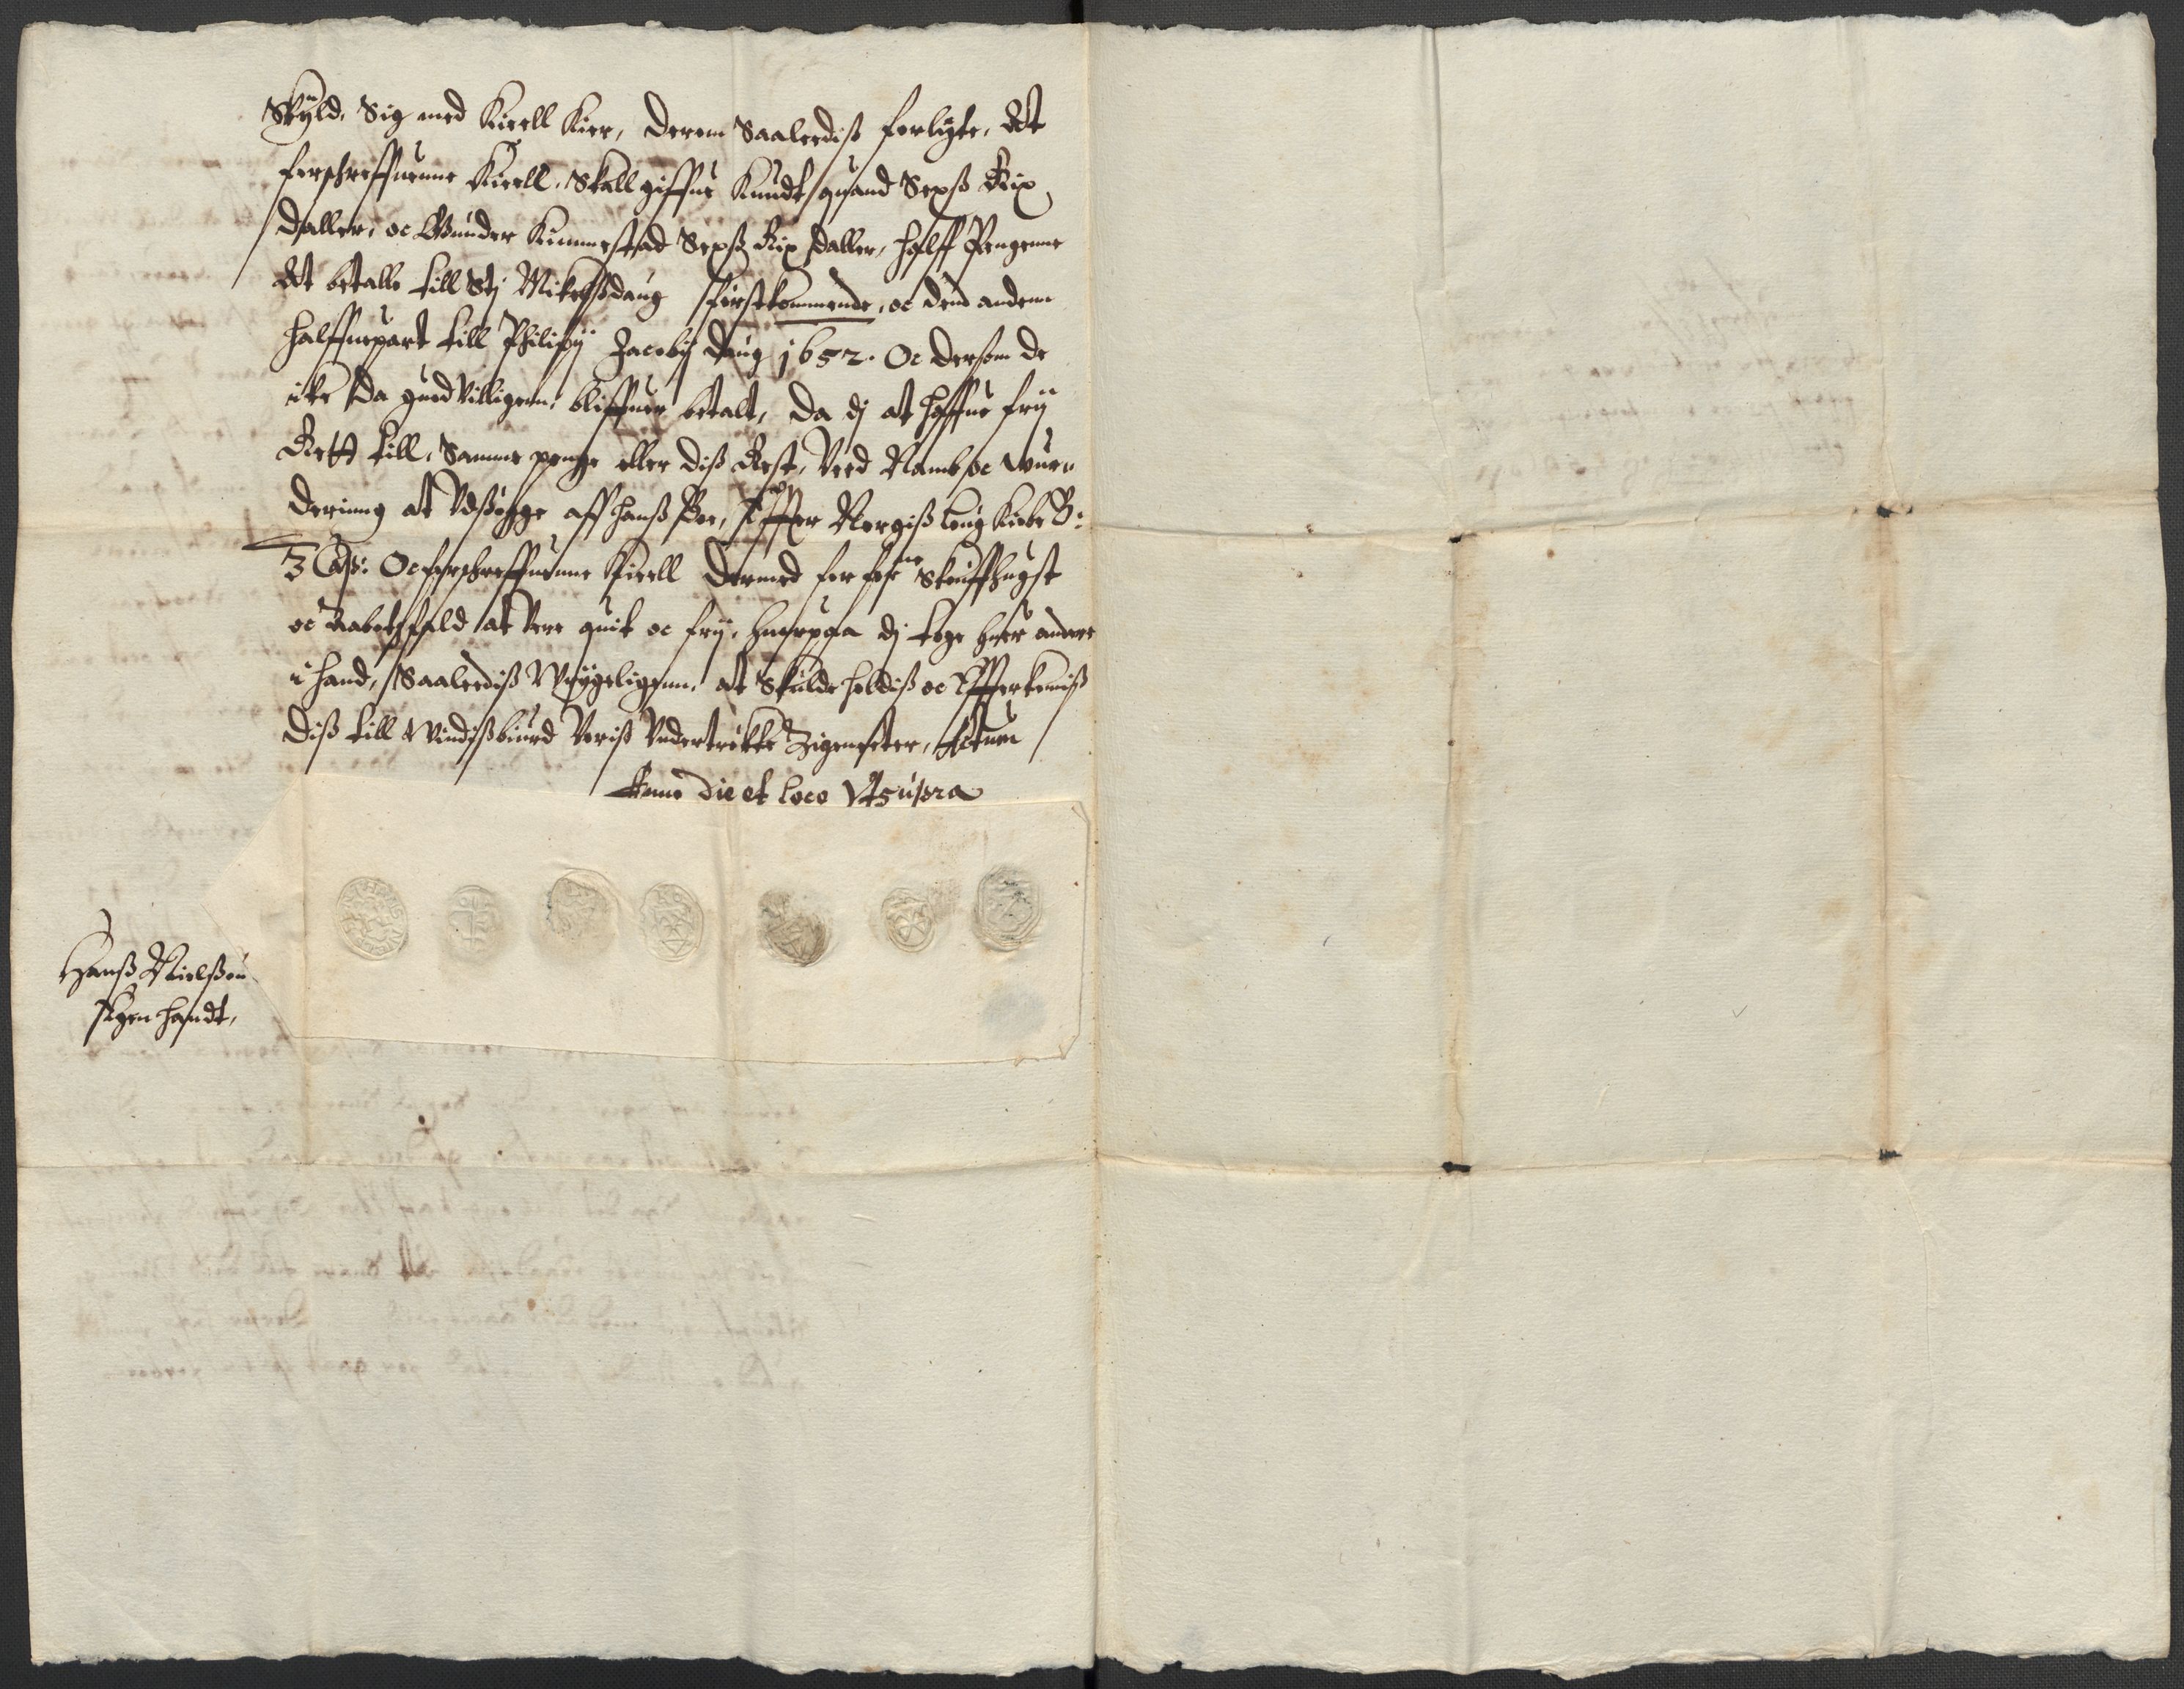 Skyld, Sig med Kieell Kier, derom Saaleediß forligte, At
forschreffuenne Kieell, Skall giffue Knudt quand Sexß Rix
daller, oc Gunder Kummestad Sexß Rix daller, halff Pengenne
At betalle till Stj Mikelßdaug förstkommende, oc dend anden
halffuepart till Philipij Jacobij daug 1652. Oc dersom de
icke da guedvilligenn, bliffuer betalt, da dj at haffue frij
Rett till, Samme penge eller diß Rest, Veed Namb oc wur-
dering at Vdßögge aff hanß Boe, Effter Norgiß loug Kiøbe B:
3 Cap: Oc forschreffuenne Kieell dermed for forne Skouffhugst
oc Aabodßfald at Vere quit oc frij, huorpaa dj toge huer andere
i hand, Saaleediß Wrÿgeligenn, at Skulde holdiß oc Effterkomiß
diß till Windißbiurd Voriß Vndertrökte Zigeneter, Actum
Anno die et loco Vtsupra
Hanß Nielßøn
Egen handt,